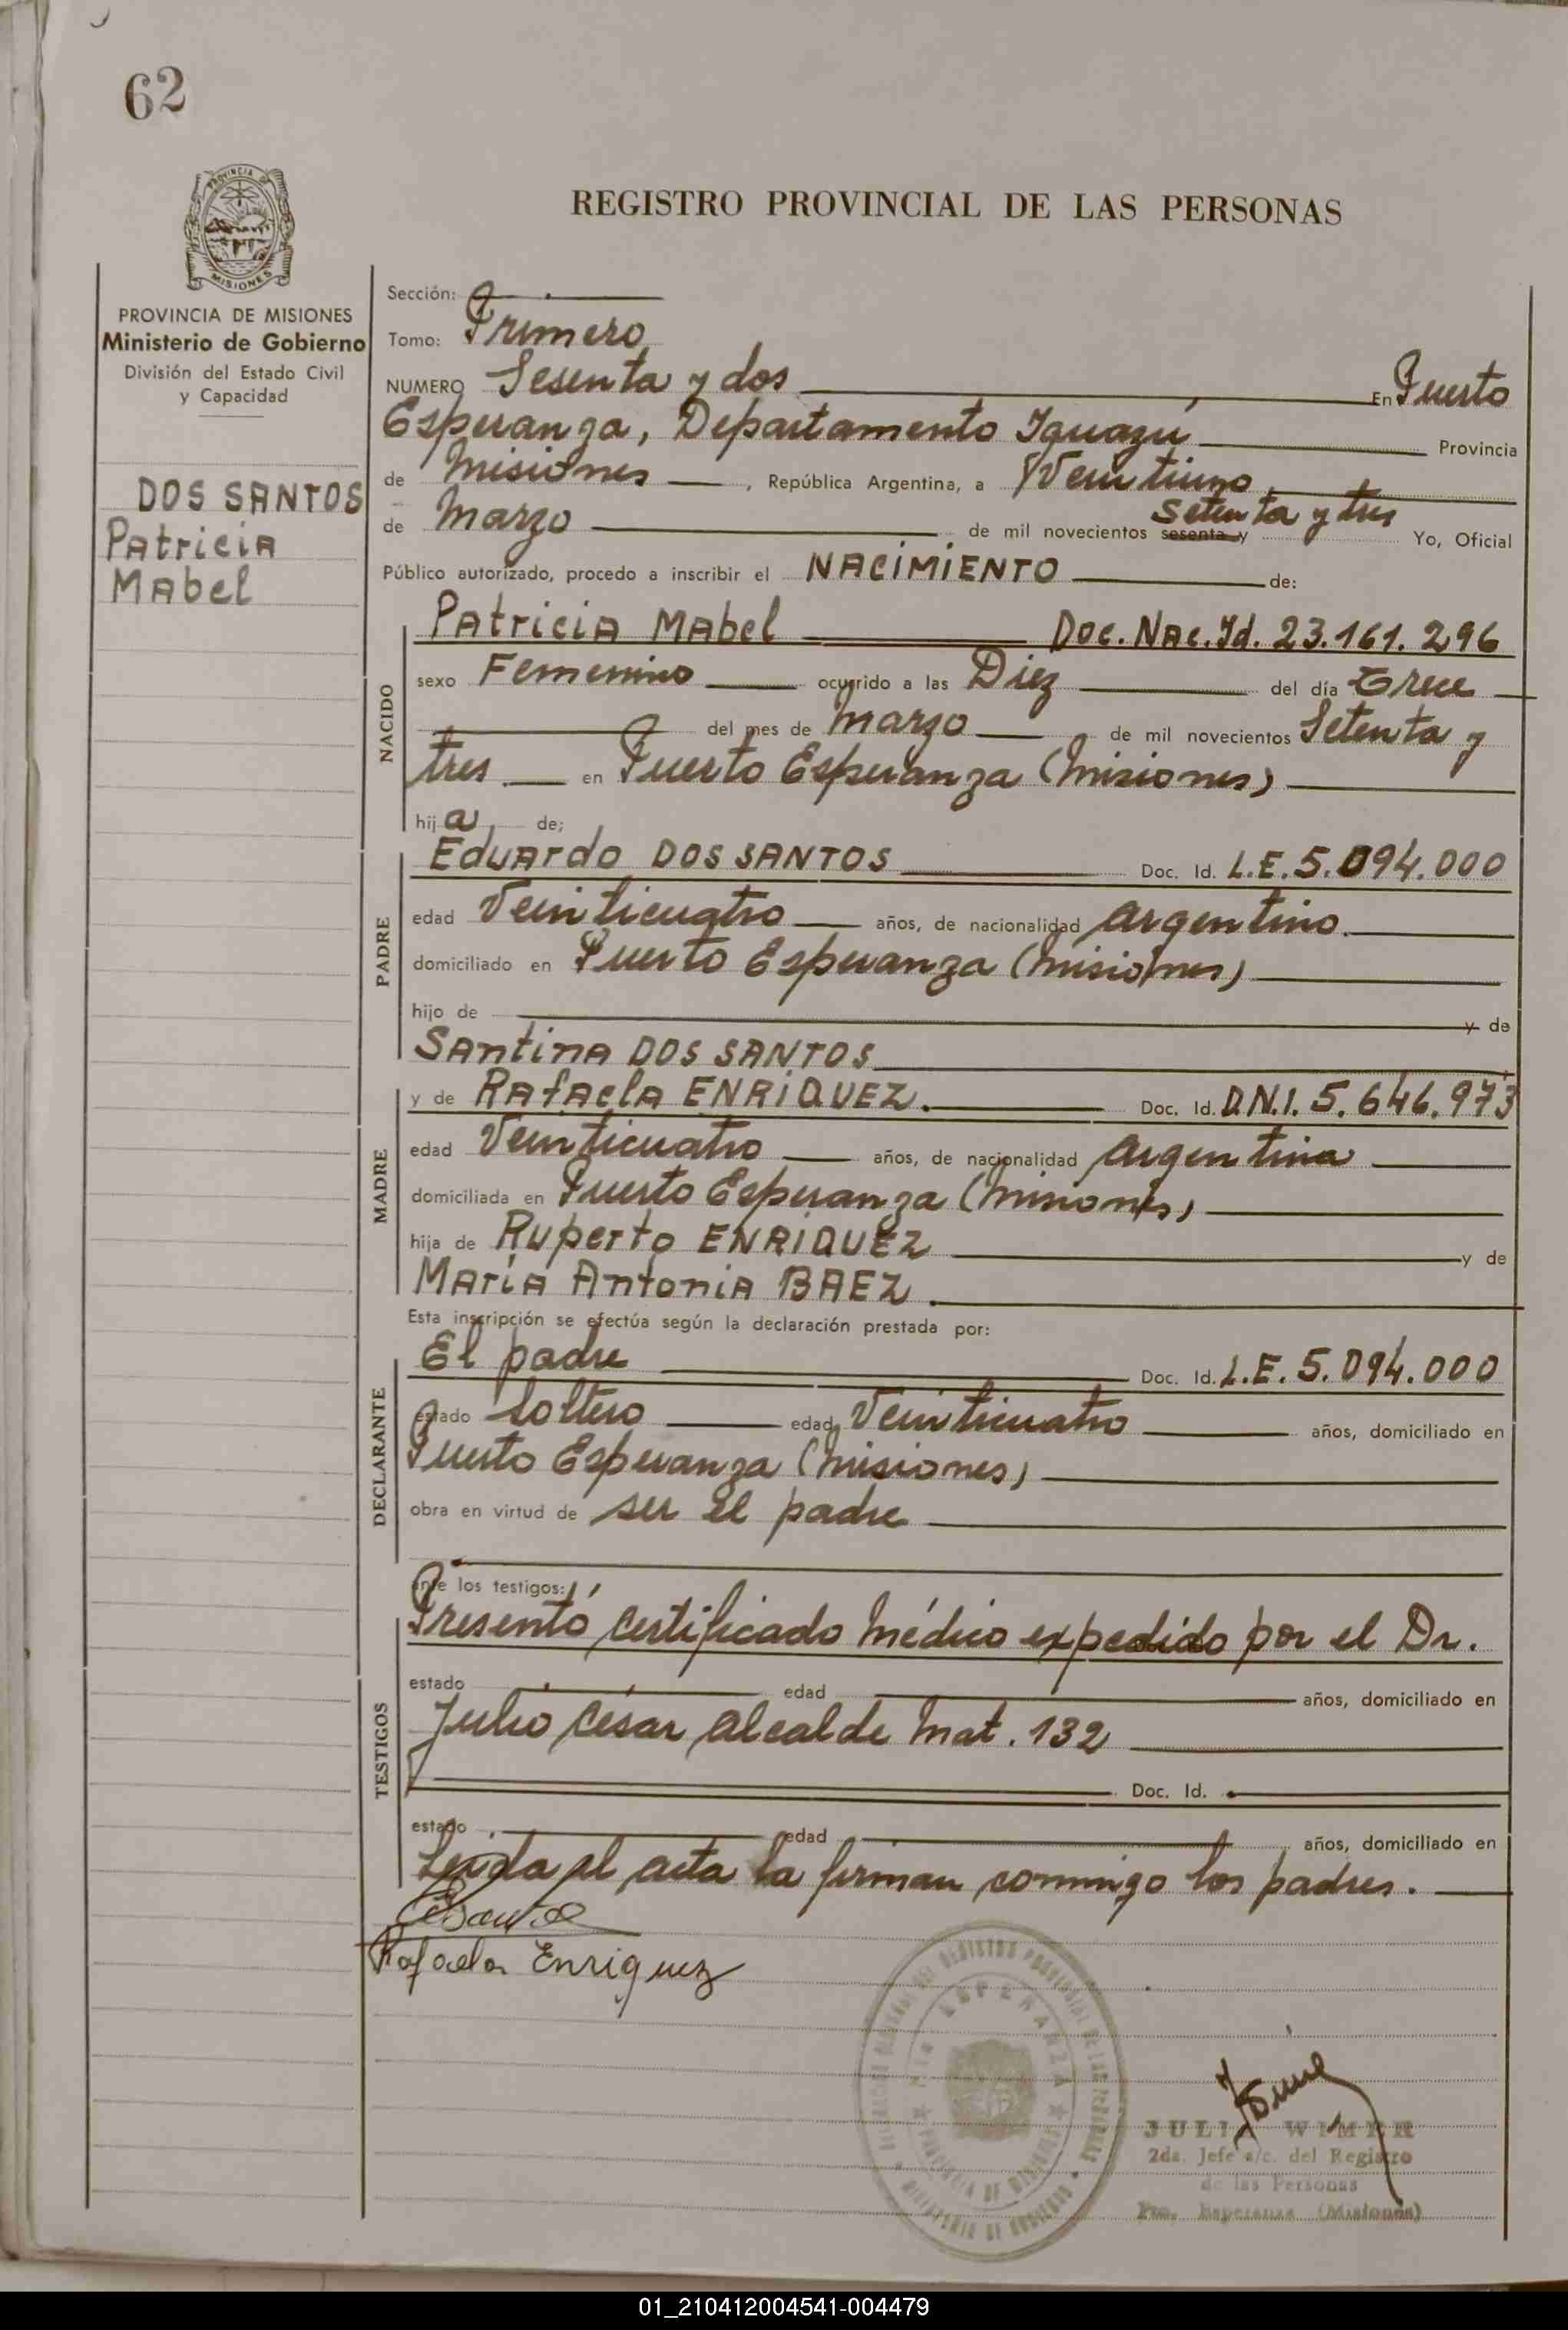 62
PROVINCIA DE
MISIONES
REGISTRO PROVINCIAL DE LAS PERSONAS
PROVINCIA DE MISIONES
Ministerio de Gobierno
División del Estado Civil
y Capacidad
DOS SANTOS
Patricia
Mabel
Sección:
Tomo: Primero
NUMERO Sesenta y dos En Puerto
Esperanza, Departamento Iguazú Provincia
de Misiones, República Argentina, a Veintiuno
de Marzo de mil novecientos sesenta y Setenta y tres Yo, Oficial
Público autorizado, procedo a inscribir el NACIMIENTO de:
NACIDO
Patricia Mabel Doc. Nac. Id. 23.161.296
sexo Femenino ocurrido a las Diez del día Trece
del mes de Marzo de mil novecientos Setenta y
tres en Puerto Esperanza (Misiones)
hija de;
PADRE
Eduardo DOS SANTOS Doc. Id. L.E. 5.094.000
edad Veinticuatro años, de nacionalidad Argentino.
domiciliado en Puerto Esperanza (Misiones)
hijo de y de
Santina DOS SANTOS
MADRE
y de Rafaela ENRIQUEZ. Doc. Id. D.N.I. 5.646.973
edad Veinticuatro años, de nacionalidad Argentina
domiciliada en Puerto Esperanza (Misiones)
hija de Ruperto ENRIQUEZ y de
María Antonia BAEZ.
Esta inscripción se efectúa según la declaración prestada por:
DECLARANTE
El padre Doc. Id. L.E. 5.094.000
estado Soltero edad Veinticuatro años, domiciliado en
Puerto Esperanza (Misiones)
obra en virtud de ser el padre
ante los testigos:
TESTIGOS
Presentó Certificado Médico expedido por el Dr.
estado edad años, domiciliado en
Julio César Alcalde Mat. 132
Doc. Id.
estado edad años, domiciliado en
Leida el acta la firman conmigo los padres.
Rafaela Enriquez
ESPERANZA
PROVINCIA DE MISIONES
MINISTERIO DE GOBIERNO
JULI WIMER
2da. Jefe a/c. del Registro
de las Personas
Pto. Esperanza (Misiones)
01_210412004541-004479